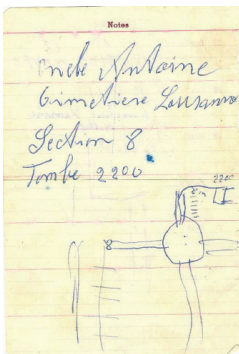 Notes
Oncle Antoine
Cimetiere Lausanne
Section 8
Tombe 2200
220
8